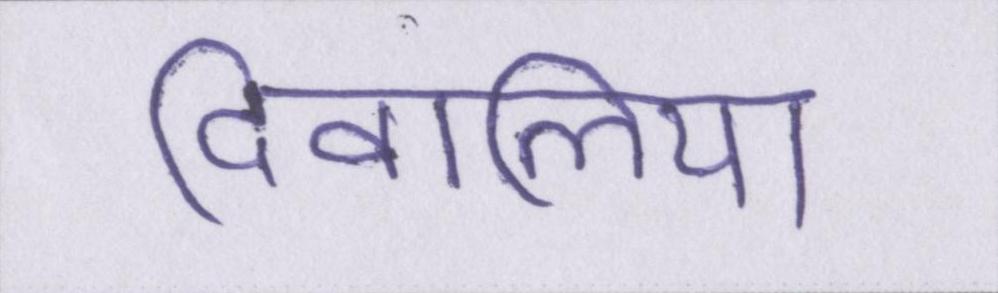 दिवालिया